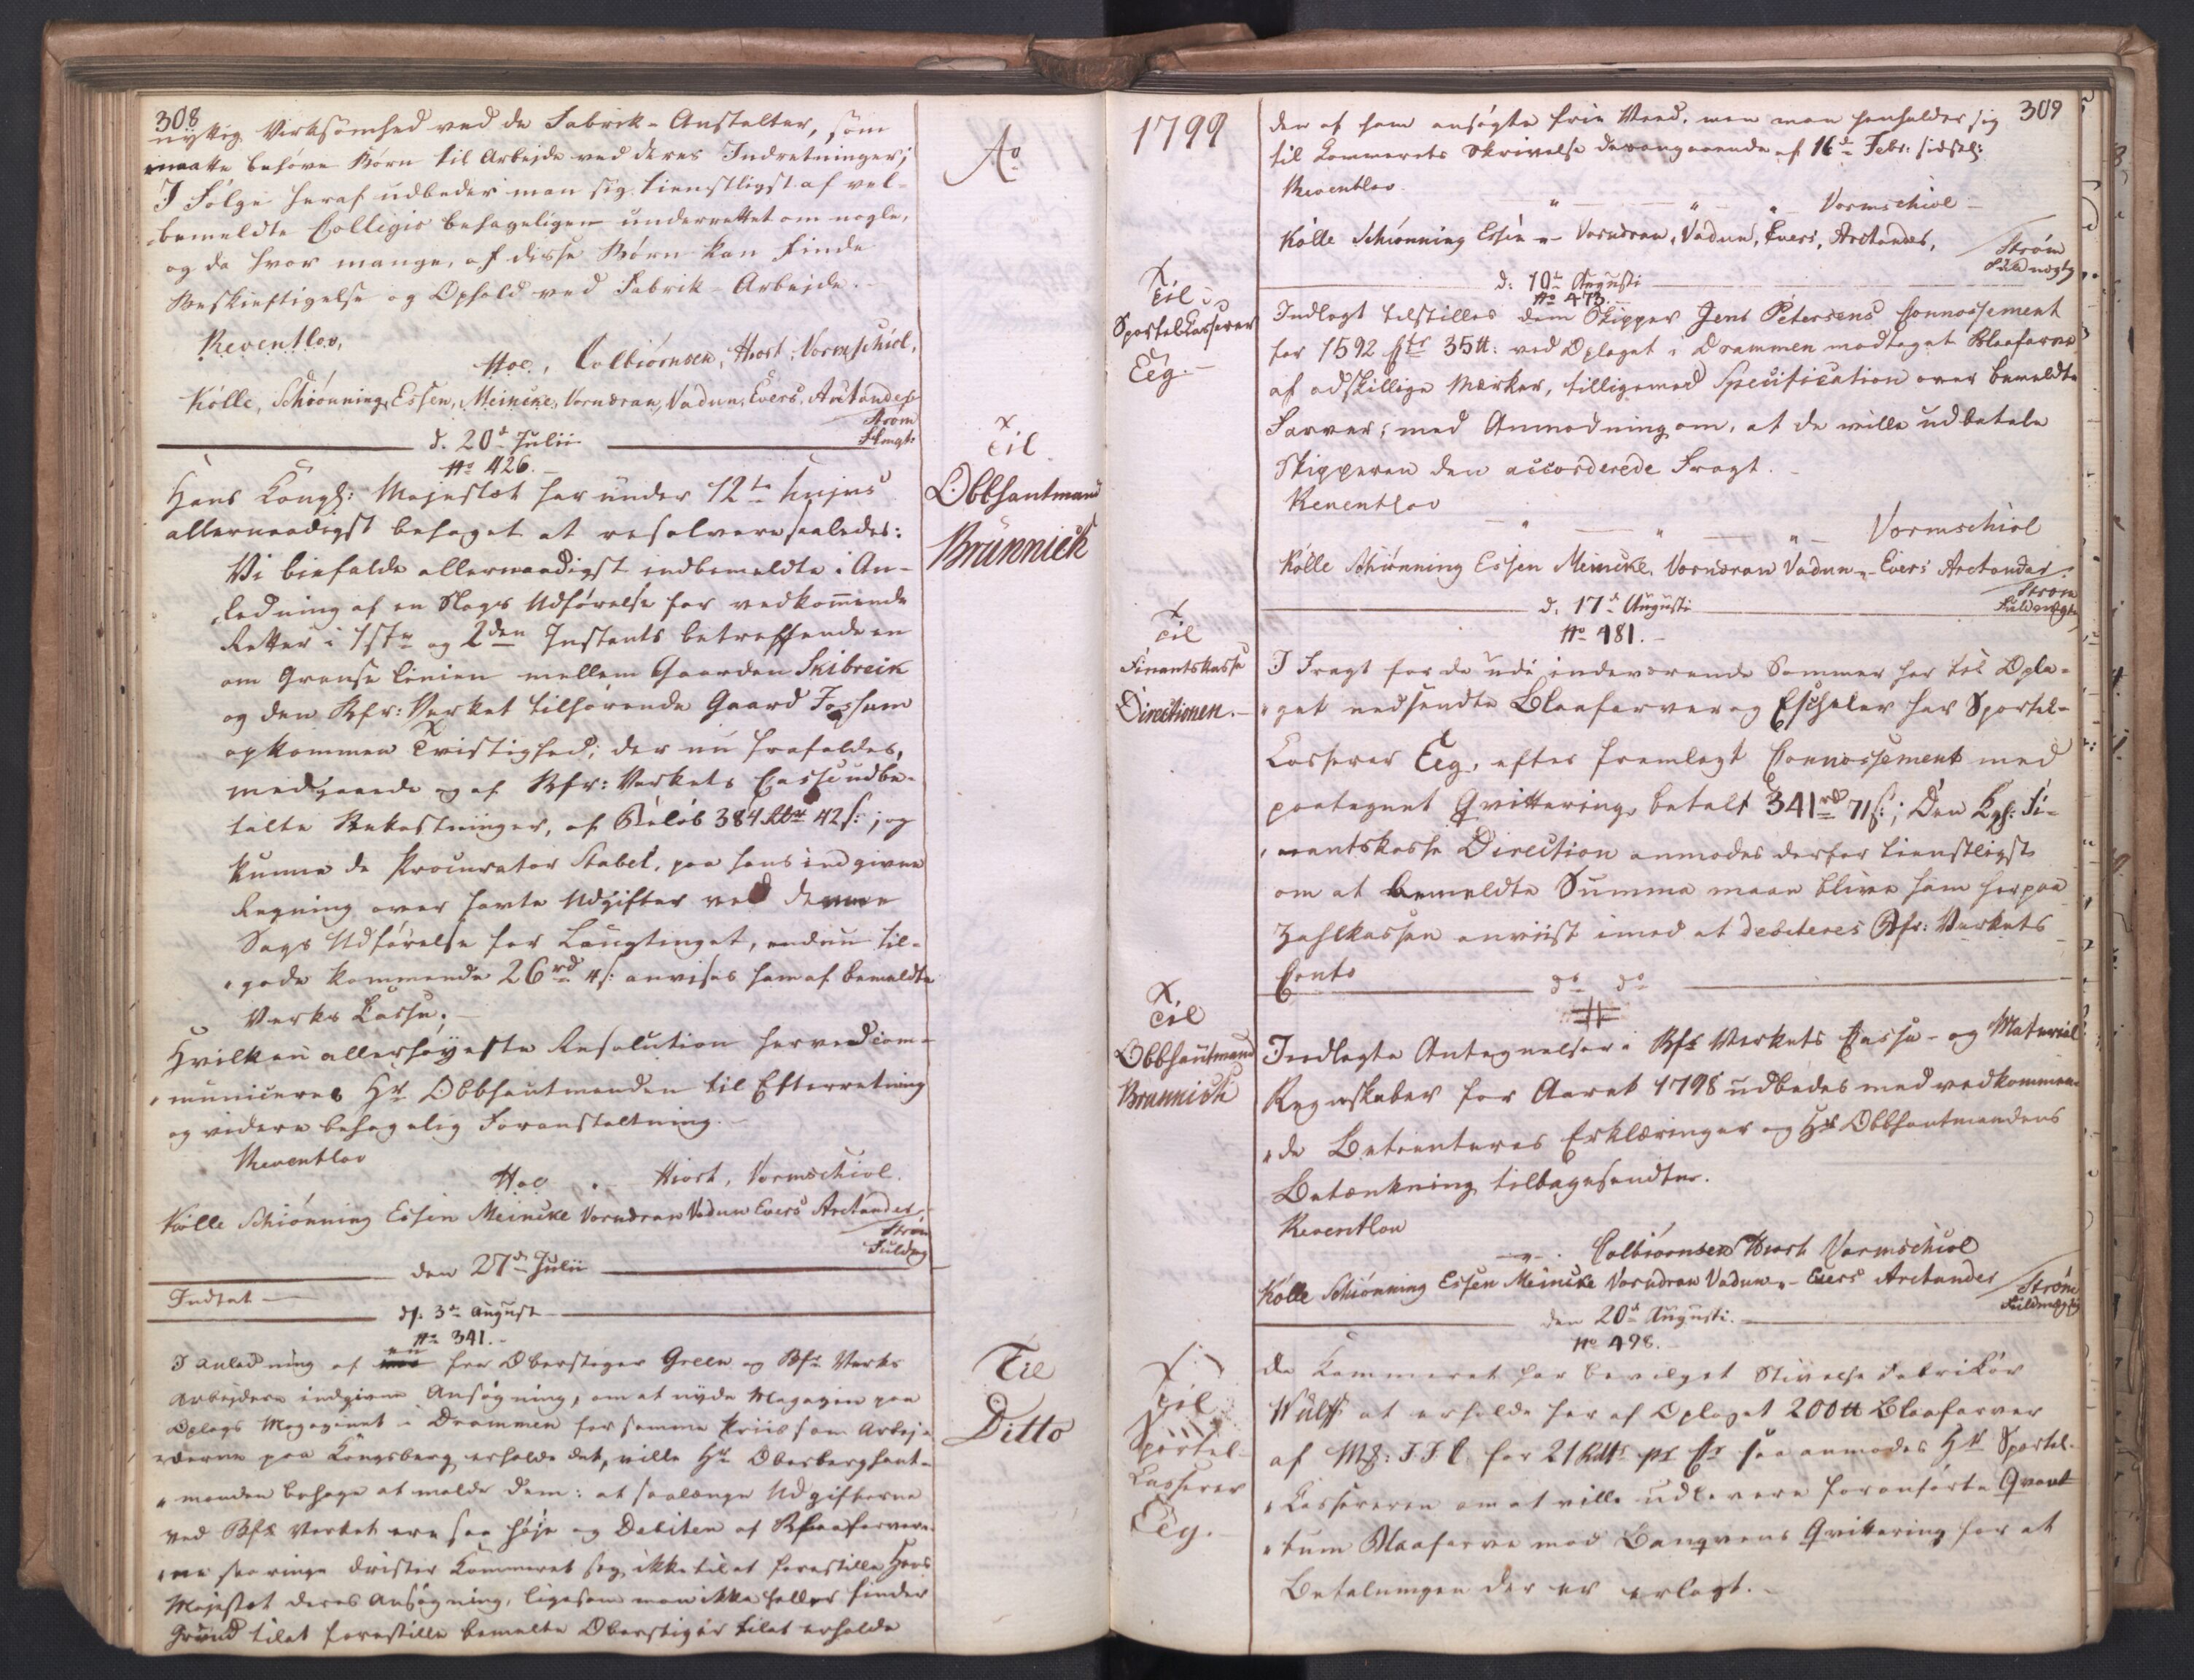 308
nyttig Virksomhed ved de Fabrik-Anstalter, som
maatte behøve Børn til Arbejde ved deres Indretninger;
I Følge heraf udbeder man sig tienstligst af vel-
bemeldte Collegio behageligen underrettet om nogle,
og da hvor mange, af disse Børn kan finde
Beskieftigelse og Ophold ved Fabrik-Arbejde.
Reventlov,
Hoe, Colbiørnsen, Hiort, Vormschiöl,
Kölle, Schiønning, Essen, Meincke, Vorndran, Vadun, Evers, Arctander
Strøm
Flmgt
A°
d. 20d Julii
No 426.
til
Obbhautmand
Brünnick
Hans Kongl: Majestæt har under 12te hujus
allernaadigst behaget at resolvere saaledes:
Vi bifalde allernaadigst indbemeldte i An-
ledning af en Sags Udførelse for vedkommende
Retter i 1ste og 2den Instants betreffende en
om Grendse Linien mellem Gaarden Skibreick
og den Bfr: Verket tilhørende Gaard Fossum
opkommen Tvistighed; der nu frafaldes,
medgaaede og af Bfr: Verkets Casse udbe-
talte Bekostninger, af Beløb 384 Rdr 42 s:; og
kunne de Procurator Stabel, paa hans indgivne
Regning over havte Udgifter ved denne
Sags Udførelse for Laugtinget, endnu til-
gode kommende 26 rd 4 s: anvises ham af bemeldte
Verks Casse.
Hvilken allerhøyeste Resolution herved com-
municeres Hr Obbhautmanden til Efterretning
og videre behagelig Foranstaltning.
Reventlov
Hoe " Hiort, Vormschiöl.
Kölle Schiønning Essen Meincke Vorndran Vadun Evers Arctander
Strøm
Fuldmg
den 27d Julii
Indtet
d. 3d August
No 341.
Til
Ditto
I Anledning af en fra Oberstiger Green og Bfr Verks
Arbejdere indgiven Ansøgning, om at nyde Magazin paa
Oplags Magazinet i Drammen for samme Priis som Arbej-
derne paa Kongsberg erholde det, ville Hr Oberberghaut-
manden behage at melde dem: at saalænge Udgifterne
ved Bfr Verket ere saa høje og Debiten af Blaafarver-
ne saa ringe drister Kammeret sig ikke til at forestille Hans
Majestæt deres Ansøgning, ligesom man ikke heller finder
Grund til at forestille bemelte Oberstiger til at erholde
1799
309
den af ham ansøgte frie Veed, men man henholder sig
til Kammerets Skrivelse desangaaende af 16d Febr: sidstl:
Reventlov
" " " Vormschiöl
Kölle Schiønning Essen " Vorndran, Vadun, Evers, Arctander,
Strøm
Fuldmægtg
d: 10d Augusti
No 473.
til
Sportel Casserer
Eeg.
Indlagt tilstilles dem Skipper Jens Petersens Connossement
for 1592 Ctr 35 tt: ved Oplaget i Drammen modtaget Blaafarve
af adskillige Mærker, tilligemed Specification over bemeldte
Farver; med Anmodning om, at de ville udbetale
Skipperen den accorderede Fragt.
Reventlov
" " " Vormschiöl
Kölle Schiønning Essen Meincke, Vorndran Vadun " Evers Arctander
Strøm
Fuldmægtg
d. 17d Augusti
No 481.
til
Finantskasse
Directionen.
I Fragt for de udi indeværende Sommer her til Opla-
get nedsendte Blaafarver og Escheler har Sportel-
Casserer Eeg, efter fremlagt Connossement med
paategnet Qvittering, betalt 341 rd 71 s:; Den Kgl: Fi-
nantskasse Direction anmodes derfor tienstligst
om at bemeldte Summa maae blive ham herpaa
Zahlkassen anviist imod at debiteres Bfr: Verkets
Conto
do do
til
Obbhautmand
Brünnich
Indlagte Antegnelser i Bfr Verkets Casse- og Material
Regnskaber for Aaret 1798 udbedes med vedkommen-
de Betienteres Erklæringer og Hr Obbhautmandens
Betænkning tilbagesendte.
Reventlov
" Colbiørnsen Hiort Vormschiöl
Kölle Schiønning Essen Meincke Vorndran Vadun " Evers Arctander
Strøm
Fuldmægtig
den 20d Augusti.
No 498.
til
Sportel-
Casserer
Eeg.
Da Kammeret har bevilget Stivelse Fabrikør
Wulff at erholde her af Oplaget 200 tt Blaafarver
af Mk: F.F.C. for 21 Rdr pr Ctr saa anmodes Hr Sportel-
Kassereren om at ville udlevere foranførte Qvan-
tum Blaafarve mod Banqvens Qvittering for at
Betalningen der er erlagt.